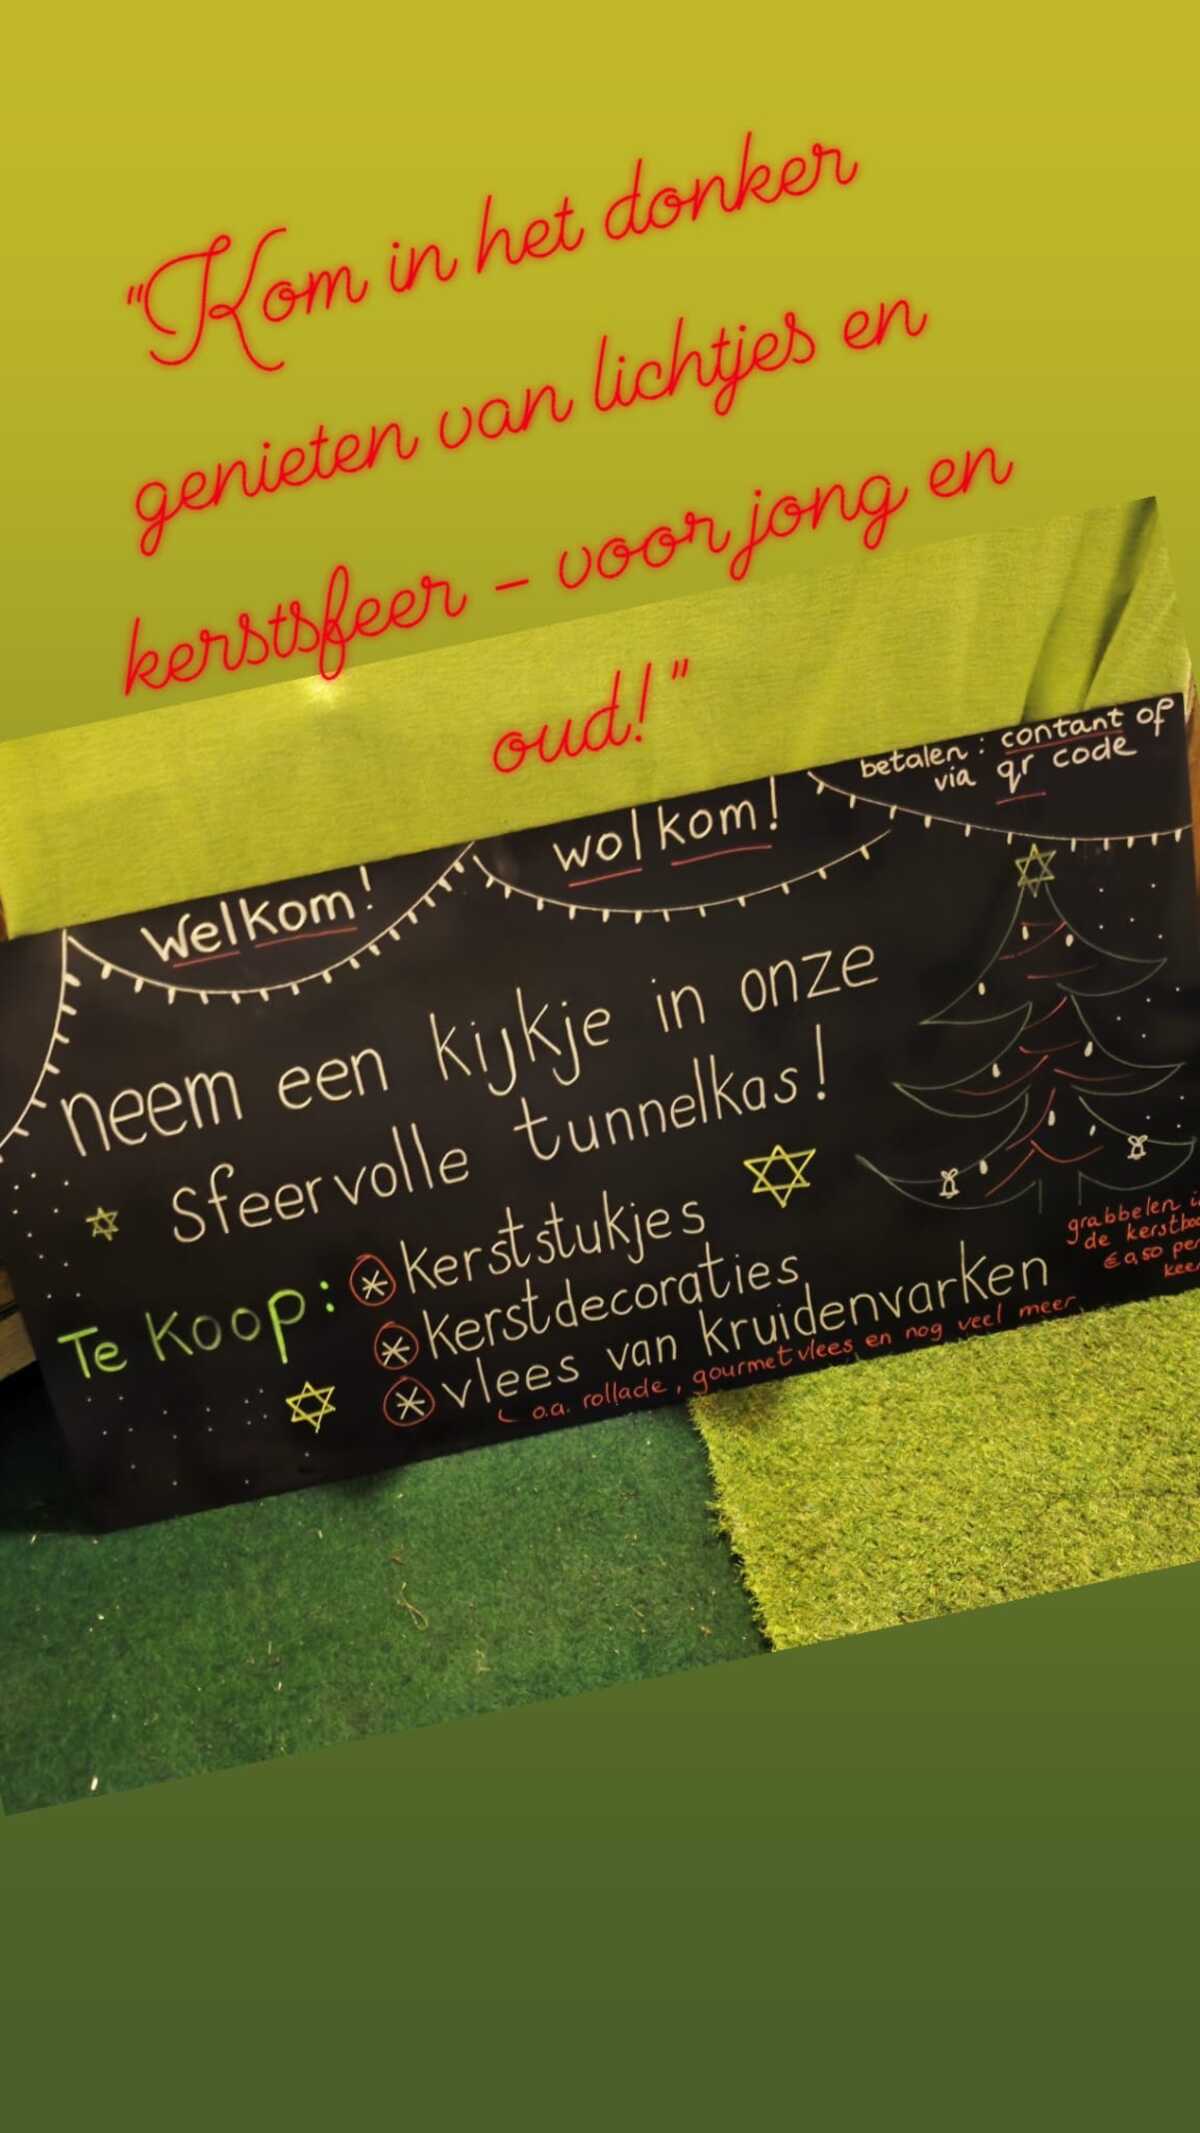 "Kom in het donker
genieten van lichtjes en
kerstsfeer - voor jong en
oud!"
betalen: contant of
via qr code
welkom!
wolkom!
neem een kijkje in onze
sfeervolle tunnelkas!
Te Koop:
* kerststukjes
* kerstdecoraties
* vlees van kruidenvarken
o.a. rollade, gourmetvlees en nog veel meer
grabbelen
de
€0,50 per
keer